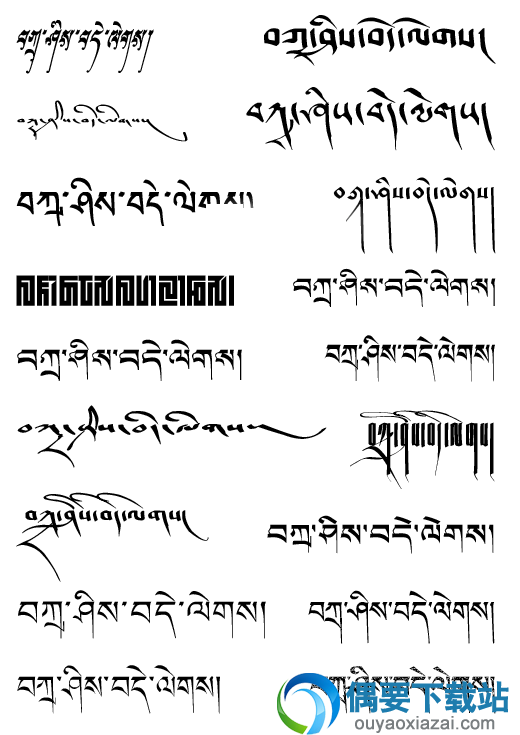 བཀྲ་ཤིས་བདེ་ལེགས།
བཀྲ་ཤིས་བདེ་ལེགས།
བཀྲ་ཤིས་བདེ་ལེགས།
བཀྲ་ཤིས་བདེ་ལེགས།
བཀྲ་ཤིས་བདེ་ལེགས།
བཀྲ་ཤིས་བདེ་ལེགས།
བཀྲ་ཤིས་བདེ་ལེགས།
བཀྲ་ཤིས་བདེ་ལེགས།
བཀྲ་ཤིས་བདེ་ལེགས།
བཀྲ་ཤིས་བདེ་ལེགས།
བཀྲ་ཤིས་བདེ་ལེགས།
བཀྲ་ཤིས་བདེ་ལེགས།
བཀྲ་ཤིས་བདེ་ལེགས།
བཀྲ་ཤིས་བདེ་ལེགས།
བཀྲ་ཤིས་བདེ་ལེགས།
བཀྲ་ཤིས་བདེ་ལེགས།
བཀྲ་ཤིས་བདེ་ལེགས།
偶要下载站
ouyaoxiazai.com